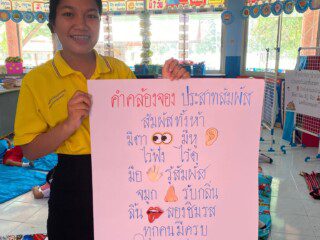 คำคล้องจอง ประสาทสัมผัส
สัมผัสทั้งห้า
มีตา มีหู
ไว้ฟัง ไว้ดู
มือ รู้สัมผัส
จมูก รับกลิ่น
ลิ้น ลองชิมรส
ทุกคนมีครบ